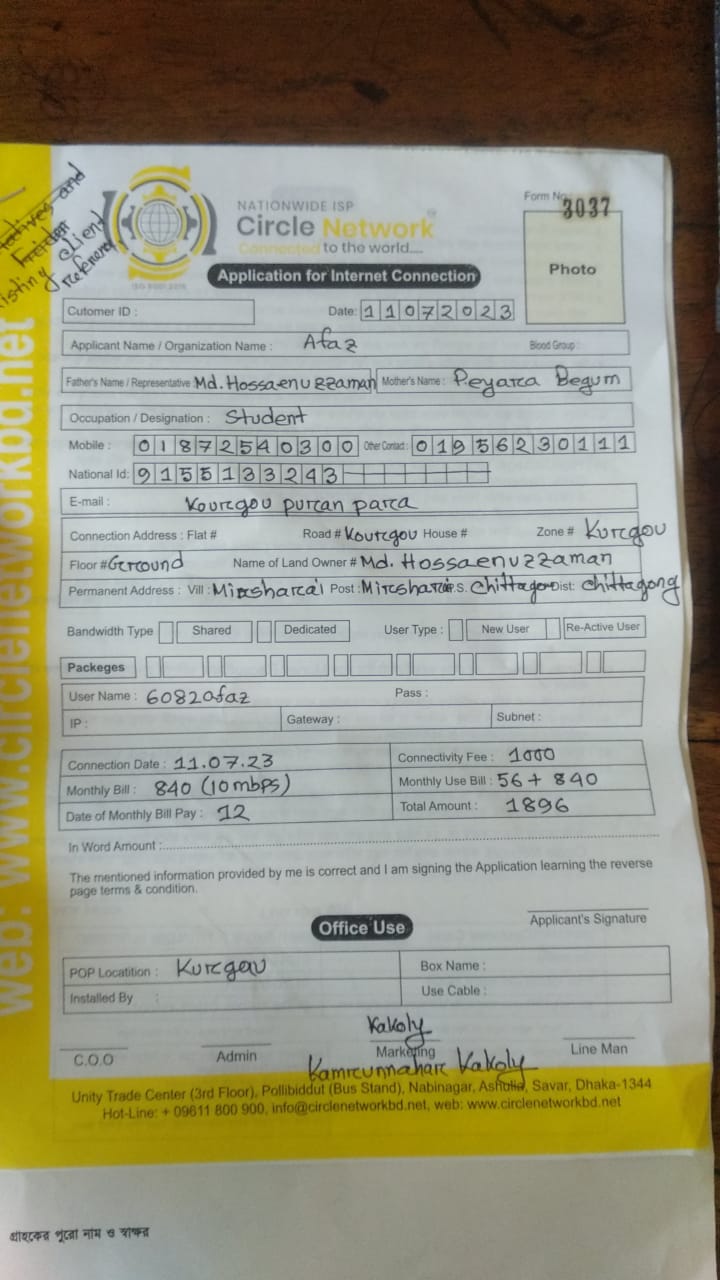 NATIONWIDE ISP
Circle Network
Connected to the world....
ISO 9001:2015
Form No. 3037
Photo
Application for Internet Connection
existing client
referend
Cutomer ID : Date: 11072023
Applicant Name / Organization Name : Afaz Blood Group :
Father's Name / Representative : Md. Hossaenuzzaman Mother's Name : Peyara Begum
Occupation / Designation : Student
Mobile : 01872540300 Other Contact : 01956230111
National Id: 9155133243
E-mail : Kourgou puran para
Connection Address : Flat # Road # Kourgou House # Zone # Kurgou
Floor # Ground Name of Land Owner # Md. Hossaenuzzaman
Permanent Address : Vill : Mirsharai Post : Mirsharai P.S. Chittagon Dist: Chittagong
Bandwidth Type Shared Dedicated User Type : New User Re-Active User
Packeges
User Name : 6082afaz Pass :
IP : Gateway : Subnet :
Connection Date : 11.07.23 Connectivity Fee : 1000
Monthly Bill : 840 (10mbps) Monthly Use Bill : 56 + 840
Date of Monthly Bill Pay : 12 Total Amount : 1896
In Word Amount :
The mentioned information provided by me is correct and I am signing the Application learning the reverse
page terms & condition.
Applicant's Signature
Office Use
POP Locatition : Kurgau Box Name :
Installed By : Use Cable :
Kakoly
C.O.O Admin Marketing Line Man
Kamrunnahar Kakoly
Unity Trade Center (3rd Floor), Pollibiddut (Bus Stand), Nabinagar, Ashulia, Savar, Dhaka-1344
Hot-Line: + 09611 800 900, info@circlenetworkbd.net, web: www.circlenetworkbd.net
web: www.circlenetworkbd.net
গ্রাহকের পুরো নাম ও স্বাক্ষর